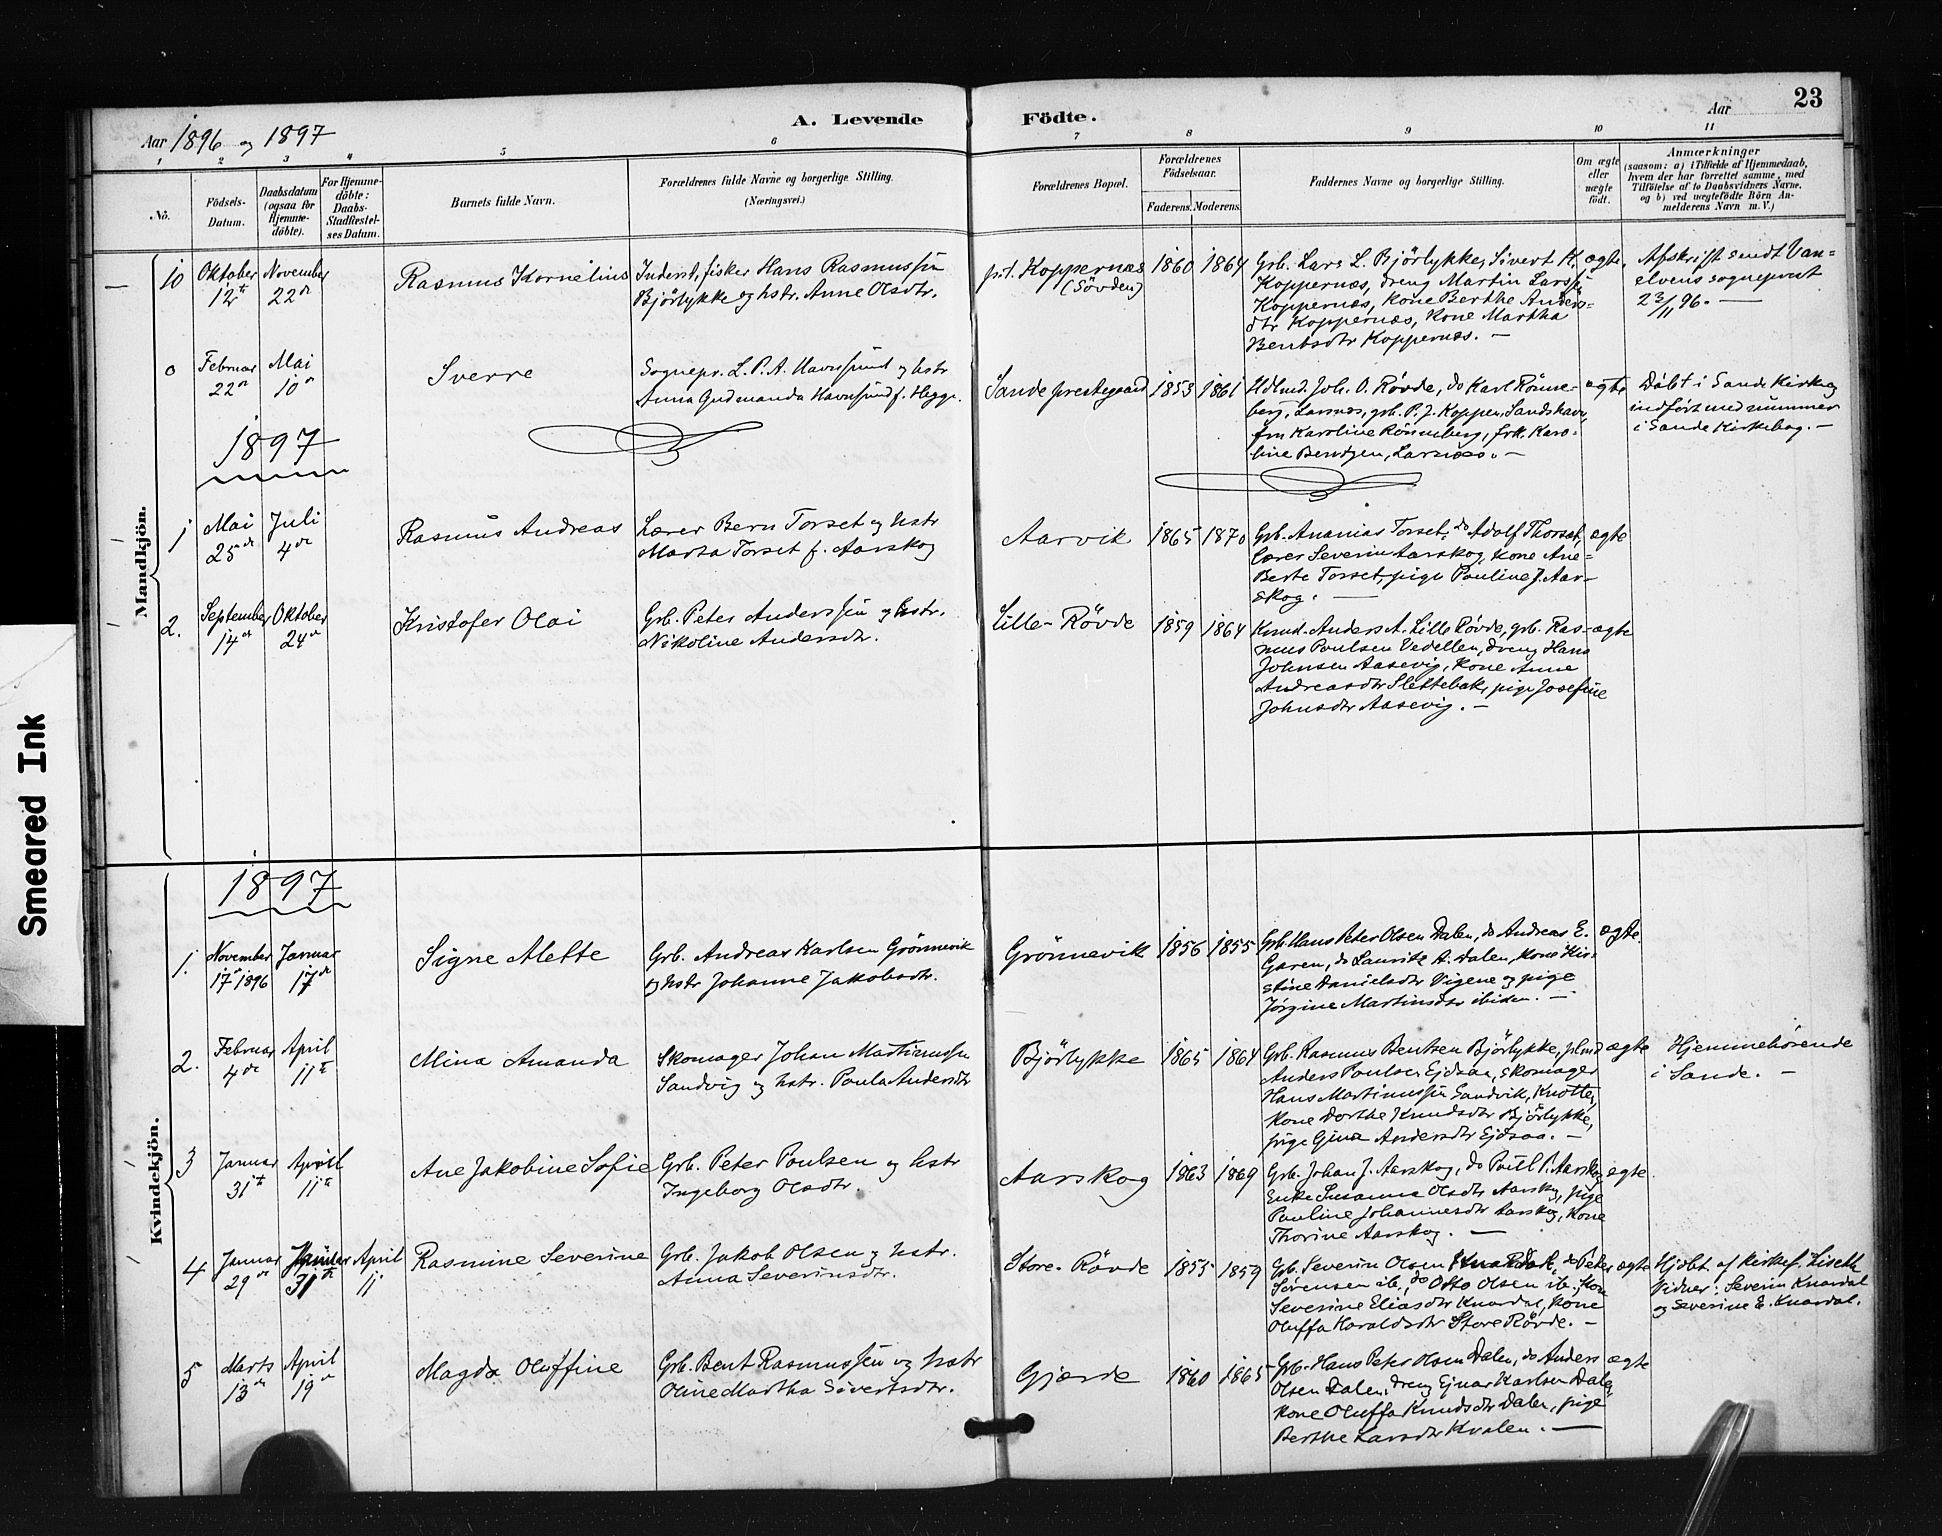 Smeared Ink
23
Aar 1896 og 1897
A. Levende Födte.
Aar
1 2 3 4 5 6 7 8 9 10 11
No.
Födsels-
Datum.
Daabsdatum
(ogsaa for
Hjemme-
döbte).
For Hjemme-
döbte:
Daabs-
Stadfæstel-
ses Datum.
Barnets fulde Navn.
Forældrenes fulde Navne og borgerlige Stilling.
(Næringsvei.)
Forældrenes Bopæl.
Forældrenes
Födselsaar.
Faderens. Moderens.
Faddernes Navne og borgerlige Stilling.
Om ægte
eller
uægte
födt.
Anmærkninger
(saasom: a) i Tilfælde af Hjemmedaab,
hvem der har forrettet samme, med
Tilföielse af to Daabsvidners Navne,
og b) ved uægtefödte Börn An-
melderens Navn m. V.)
Mandkjön.
10
Oktober
12te
November
22de
Rasmus Kornelius
Inderst, fisker Hans Rasmussen
Bjørlykke og hstr. Anne Olsdtr.
p.t. Koppernæs
(Søvden)
1860 1864
Grb. Lars L. Bjørlykke, Sivert K.
Koppernæs, dreng Martin Larss.
Koppernæs, kone Berthe Anders-
dtr Koppernæs, kone Martha
Bentsdtr Koppernæs. —
ægte.
Afskrift sendt Van-
elvens sogneprest
23/11 96. —
0
Februar
22de
Mai
10de
Sverre
Sognepr. L. P. A. Havnsund og hstr
Anna Gudmanda Havnsund f. Hegge.
Sande prestegaard
1853 1861
Hdlmd. Joh. O. Røvde, do Karl Rønne-
berg, Larsnes, grb. P. J. Koppen, Sandshavn,
fru Karoline Rønneberg, frk. Karo-
line Bendzen, Larsnæs. —
ægte
Døbt i Sande kirke og
indført med nummer
i Sande Kirkebog. —
1897
1
Mai
25de
Juli
4de
Rasmus Andreas
Lærer Bern Torset og hstr
Marta Torset f. Aarskog
Aarvik
1865 1870
Grb. Ananias Torset, do Adolf Thorset,
lærer Severin Aarskog, kone Ane-
Berte Torset, pige Pauline J. Aar-
skog. —
ægte
2.
September
14de
Oktober
24de
Kristofer Olai
Grb. Peter Anderssen og hstr.
Nikoline Andersdtr.
Lille-Røvde
1859 1864
Knud-Anders A. Lille Røvde, grb. Ras-
mus Poulsen Vedellen, dreng Hans
Johnsen Aasevig, kone Anne
Andreasdtr Slettebak, pige Josefine
Johnsdtr Aasevig. —
ægte
Kvindekjön.
1897
1.
November
17de 1896
Januar
17de
Signe Alette
Grb. Andreas Karlsen Grønnevik
og hstr Johanne Jakobsdtr.
Grønnevik
1856 1855
Grb. Hans Peter Olsen Dalen, do Andreas E.
Garen, do Lauritz A. Dalen, kone Kir-
stine Danielsdtr Vigene og pige
Jørgine Martinsdtr ibiden. —
ægte.
2.
Februar
4de
April
11te
Mina Amanda
Skomager Johan Martinussen
Sandvig og hstr. Paula Andersdtr
Bjørlykke
1865 1864
Grb. Rasmus Bentsen Bjørlykke, plmd
Anders Paulsen Ejdsaa, skomager
Hans Martinussen Sandvik, Knotte,
kone Dorthe Knudsdtr Bjørlykke,
pige Gina Andersdtr Ejdsaa. —
ægte
Hjemmehørende
i Sande. —
3
Januar
31te
April
11te
Ane Jakobine Sofie
Grb. Peter Poulsen og hstr
Ingeborg Olsdtr.
Aarskog
1863 1869
Grb. Johan J. Aarskog, do Poul P. Aarskog
Enke Susanna Olsdtr Aarskog, pige
Pauline Johannesdtr Aarskog, kone
Thorine Aarskog. —
ægte.
4
Januar
29de
Januar
31te
April
11
Rasmine Severine
Grb. Jakob Olsen og hstr.
Anna Severinsdtr.
Store-Røvde
1855 1859
Grb. Severin Olsen Knardal, do Peter
Sørensen ib., do Otto Olsen ib., kone
Severine Eliasdtr Knardal, kone
Oluffa Haraldsdtr Store Røvde. —
ægte
Hjdbt. af kirkes. Liseth
Vidner: Severin Knardal
og Severine E. Knardal.
5
Marts
13de
April
19de
Magda Oluffine
Grb. Bent Rasmussen og hstr
Oline Martha Sivertsdtr.
Gjerde
1860 1865
Grb. Hans Peter Olsen Dalen, do Anders
Olsen Dalen, dreng Ejnar Karlsen Dale,
kone Oluffa Knudsdtr Dalen, pige
Berthe Larsdtr Kvalen. —
ægte